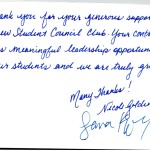 ank you for your generous suppor
ew Student Council Club. Your cont
s meaningful leadership opportun
ur students and we are truly gr
Many Thanks!
Nicole
Sara